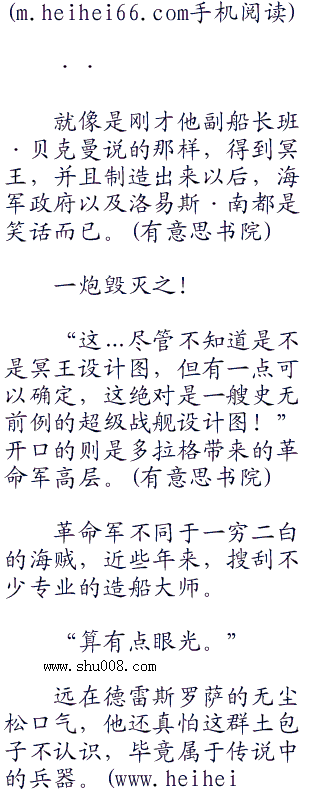 (m.heihei66.com手机阅读)
. .
就像是刚才他副船长班
·贝克曼说的那样，得到冥
王，并且制造出来以后，海
军政府以及洛易斯·南都是
笑话而已。(有意思书院)
一炮毁灭之！
“这...尽管不知道是不
是冥王设计图，但有一点可
以确定，这绝对是一艘史无
前例的超级战舰设计图！”
开口的则是多拉格带来的革
命军高层。(有意思书院)
革命军不同于一穷二白
的海贼，近些年来，搜刮不
少专业的造船大师。
“算有点眼光。”
www.shu008.com
远在德雷斯罗萨的无尘
松口气，他还真怕这群土包
子不认识，毕竟属于传说中
的兵器。(www.heihei